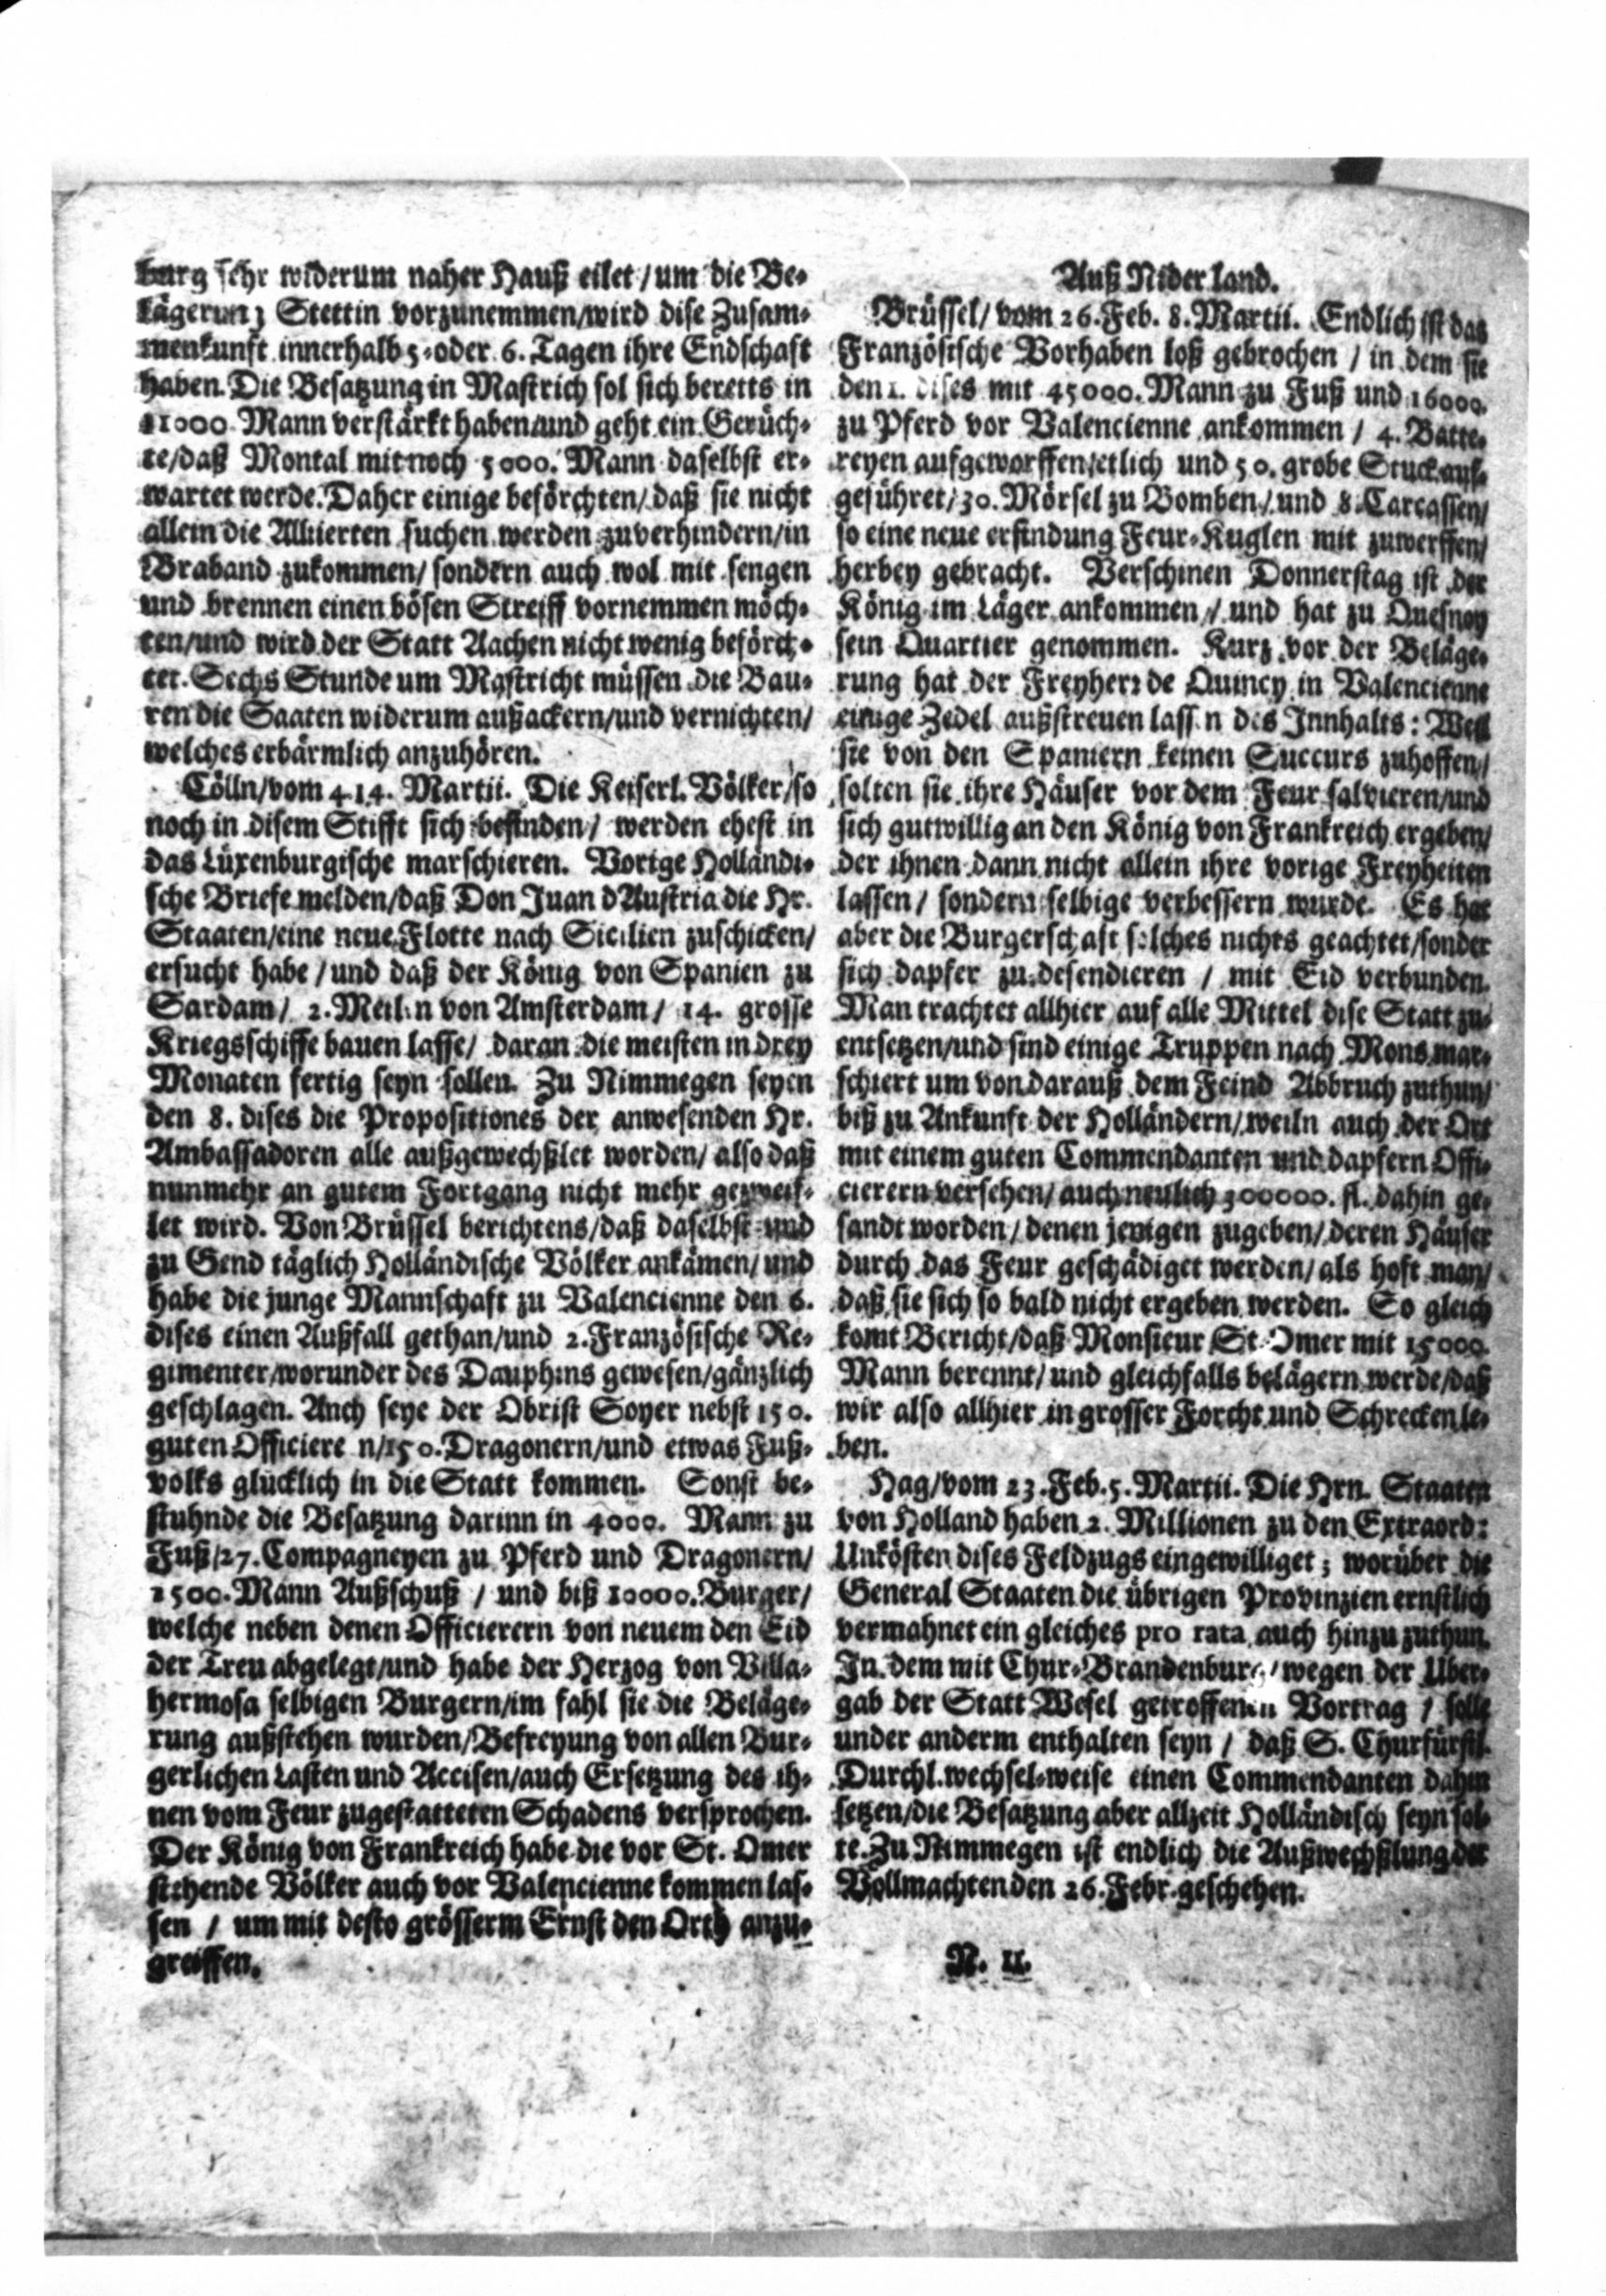 burg sehr widerum naher Hauß eilet / um die Be-
lägerung Stettin vorzunemmen/wird dise Zusam-
menkunft innerhalb 5. oder 6. Tagen ihre Endschaft
haben. Die Besatzung in Mastrich sol sich beretts in
11000. Mann verstärkt haben/und geht ein Gerüch-
te/daß Montal mit noch 5000. Mann daselbst er-
wartet werde. Daher einige beförchten/daß sie nicht
allein die Alliierten suchen werden zuverhindern/in
Braband zukommen/ sondern auch wol mit sengen
und brennen einen bösen Streiff vornemmen möch-
ten/und wird der Statt Aachen nicht wenig beförch-
tet. Sechs Stunde um Mastricht müssen die Bau-
ren die Saaten widerum außackern/und vernichten/
welches erbärmlich anzuhören.
Cölln/vom 4.14. Martii. Die Keiserl. Völker/so
noch in disem Stifft sich befinden/ werden ehest in
das Lüxenburgische marschieren. Vorige Holländi-
sche Briefe melden/daß Don Juan dAustria die Hr.
Staaten/eine neue Flotte nach Sicilien zuschicken/
ersucht habe / und daß der König von Spanien zu
Sardam/ 2. Meilen von Amsterdam/ 14. grosse
Kriegsschiffe bauen lasse/ daran die meisten in drey
Monaten fertig seyn sollen. Zu Nimmegen seyen
den 8. dises die Propositiones der anwesenden Hr.
Ambassadoren alle außgewechßlet worden/ also daß
nunmehr an gutem Fortgang nicht mehr gezweif-
let wird. Von Brüssel berichtens/daß daselbst und
zu Gend täglich Holländische Völker ankämen/ und
habe die junge Mannschaft zu Valencienne den 6.
dises einen Außfall gethan/und 2. Französische Re-
gimenter/worunder des Dauphins gewesen/gänzlich
geschlagen. Auch seye der Obrist Soyer nebst 150.
guten Officiere n/150. Dragonern/und etwas Fuß-
volks glücklich in die Statt kommen. Sonst be-
stuhnde die Besatzung darinn in 4000. Mann zu
Fuß/27. Compagneyen zu Pferd und Dragonern/
2500. Mann Außschuß / und biß 10000. Burger/
welche neben denen Officierern von neuem den Eid
der Treu abgelegt/und habe der Herzog von Villa-
hermosa selbigen Burgern/im fahl sie die Beläge-
rung außstehen wurden/Befreyung von allen Bur-
gerlichen Lasten und Accisen/auch Ersetzung des ih-
nen vom Feur zugestatteten Schadens versprochen.
Der König von Frankreich habe die vor St. Omer
stehende Völker auch vor Valencienne kommen las-
sen / um mit desto grösserm Ernst den Orth anzu-
greiffen.
Auß Niderland.
Brüssel/ vom 26. Feb. 8. Martii. Endlich ist das
Französische Vorhaben loß gebrochen / in dem sie
den 1. dises mit 45000. Mann zu Fuß und 16000.
zu Pferd vor Valencienne ankommen / 4. Batte-
reyen aufgeworffen/etlich und 50. grobe Stuck auf-
geführet/30. Mörsel zu Bomben/ und 8. Carcassen/
so eine neue erfindung Feur-Kuglen mit zuwerffen/
herbey gebracht. Verschinen Donnerstag ist der
König im Läger ankommen / und hat zu Quesnoy
sein Quartier genommen. Kurz vor der Beläge-
rung hat der Freyherr de Quincy in Valencienne
einige Zedel außstreuen lassen des Innhalts: Weil
sie von den Spaniern keinen Succurs zuhoffen/
solten sie ihre Häuser vor dem Feur salvieren/und
sich gutwillig an den König von Frankreich ergeben/
der ihnen dann nicht allein ihre vorige Freyheiten
lassen/ sondern selbige verbessern wurde. Es hat
aber die Burgerschaft solches nichts geachtet/sonder
sich dapfer zu defendieren / mit Eid verbunden.
Man trachtet allhier auf alle Mittel dise Statt zu-
entsetzen/und sind einige Truppen nach Mons mar-
schiert um von darauß dem Feind Abbruch zuthun/
biß zu Ankunft der Holländern/ weiln auch der Ort
mit einem guten Commendanten und dapfern Offi-
cierern versehen/ auch neulich 300000. fl. dahin ge-
sandt worden/ denen jenigen zugeben/ deren Häuser
durch das Feur geschädiget werden/ als hoft man/
daß sie sich so bald nicht ergeben werden. So gleich
komt Bericht/daß Monsieur St. Omer mit 15000.
Mann berennt/ und gleichfalls belägern werde/daß
wir also allhier in grosser Forcht und Schrecken le-
ben.
Hag/vom 23. Feb. 5. Martii. Die Hrn. Staaten
von Holland haben 2. Millionen zu den Extraord:
Unkösten dises Feldzugs eingewilliget; worüber die
General Staaten die übrigen Provinzien ernstlich
vermahnet ein gleiches pro rata auch hinzu zuthun.
In dem mit Chur-Brandenburg / wegen der Uber-
gab der Statt Wesel getroffenen Vortrag / solle
under anderm enthalten seyn / daß S. Churfürstl.
Durchl. wechsel-weise einen Commendanten dahin
setzen/die Besatzung aber allzeit Holländisch seyn sol-
te. Zu Nimmegen ist endlich die Außwechßlung der
Vollmachten den 26. Febr. geschehen.
N. 11.